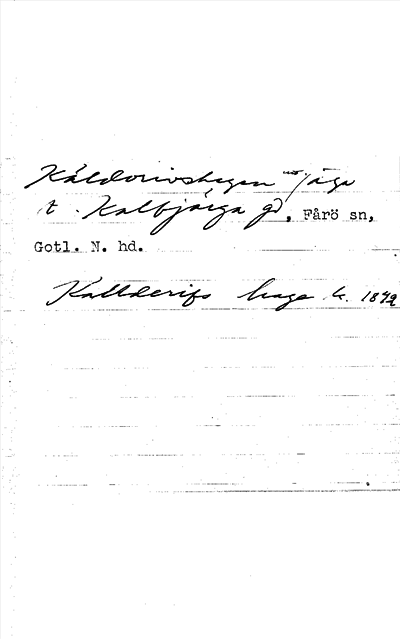 Kälderivshagen ustr äga
t. Kalbjärga gd, Fårö sn,
Gotl. N. hd.
Kallderifs hage k. 1879